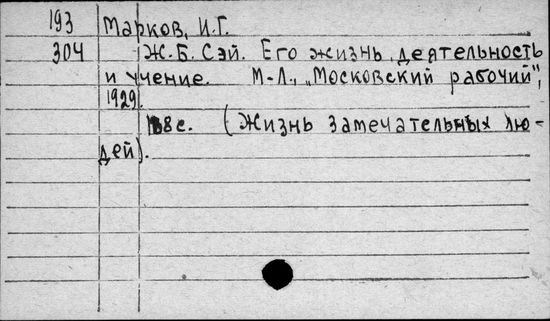 193 Марков, И.Г.
304 Ж.Б. Сэй. Его жизнь, деятельность
и учение. М-Л., „Московский рабочий",
1929.
с. (Жизнь замечательных лю-
дей).